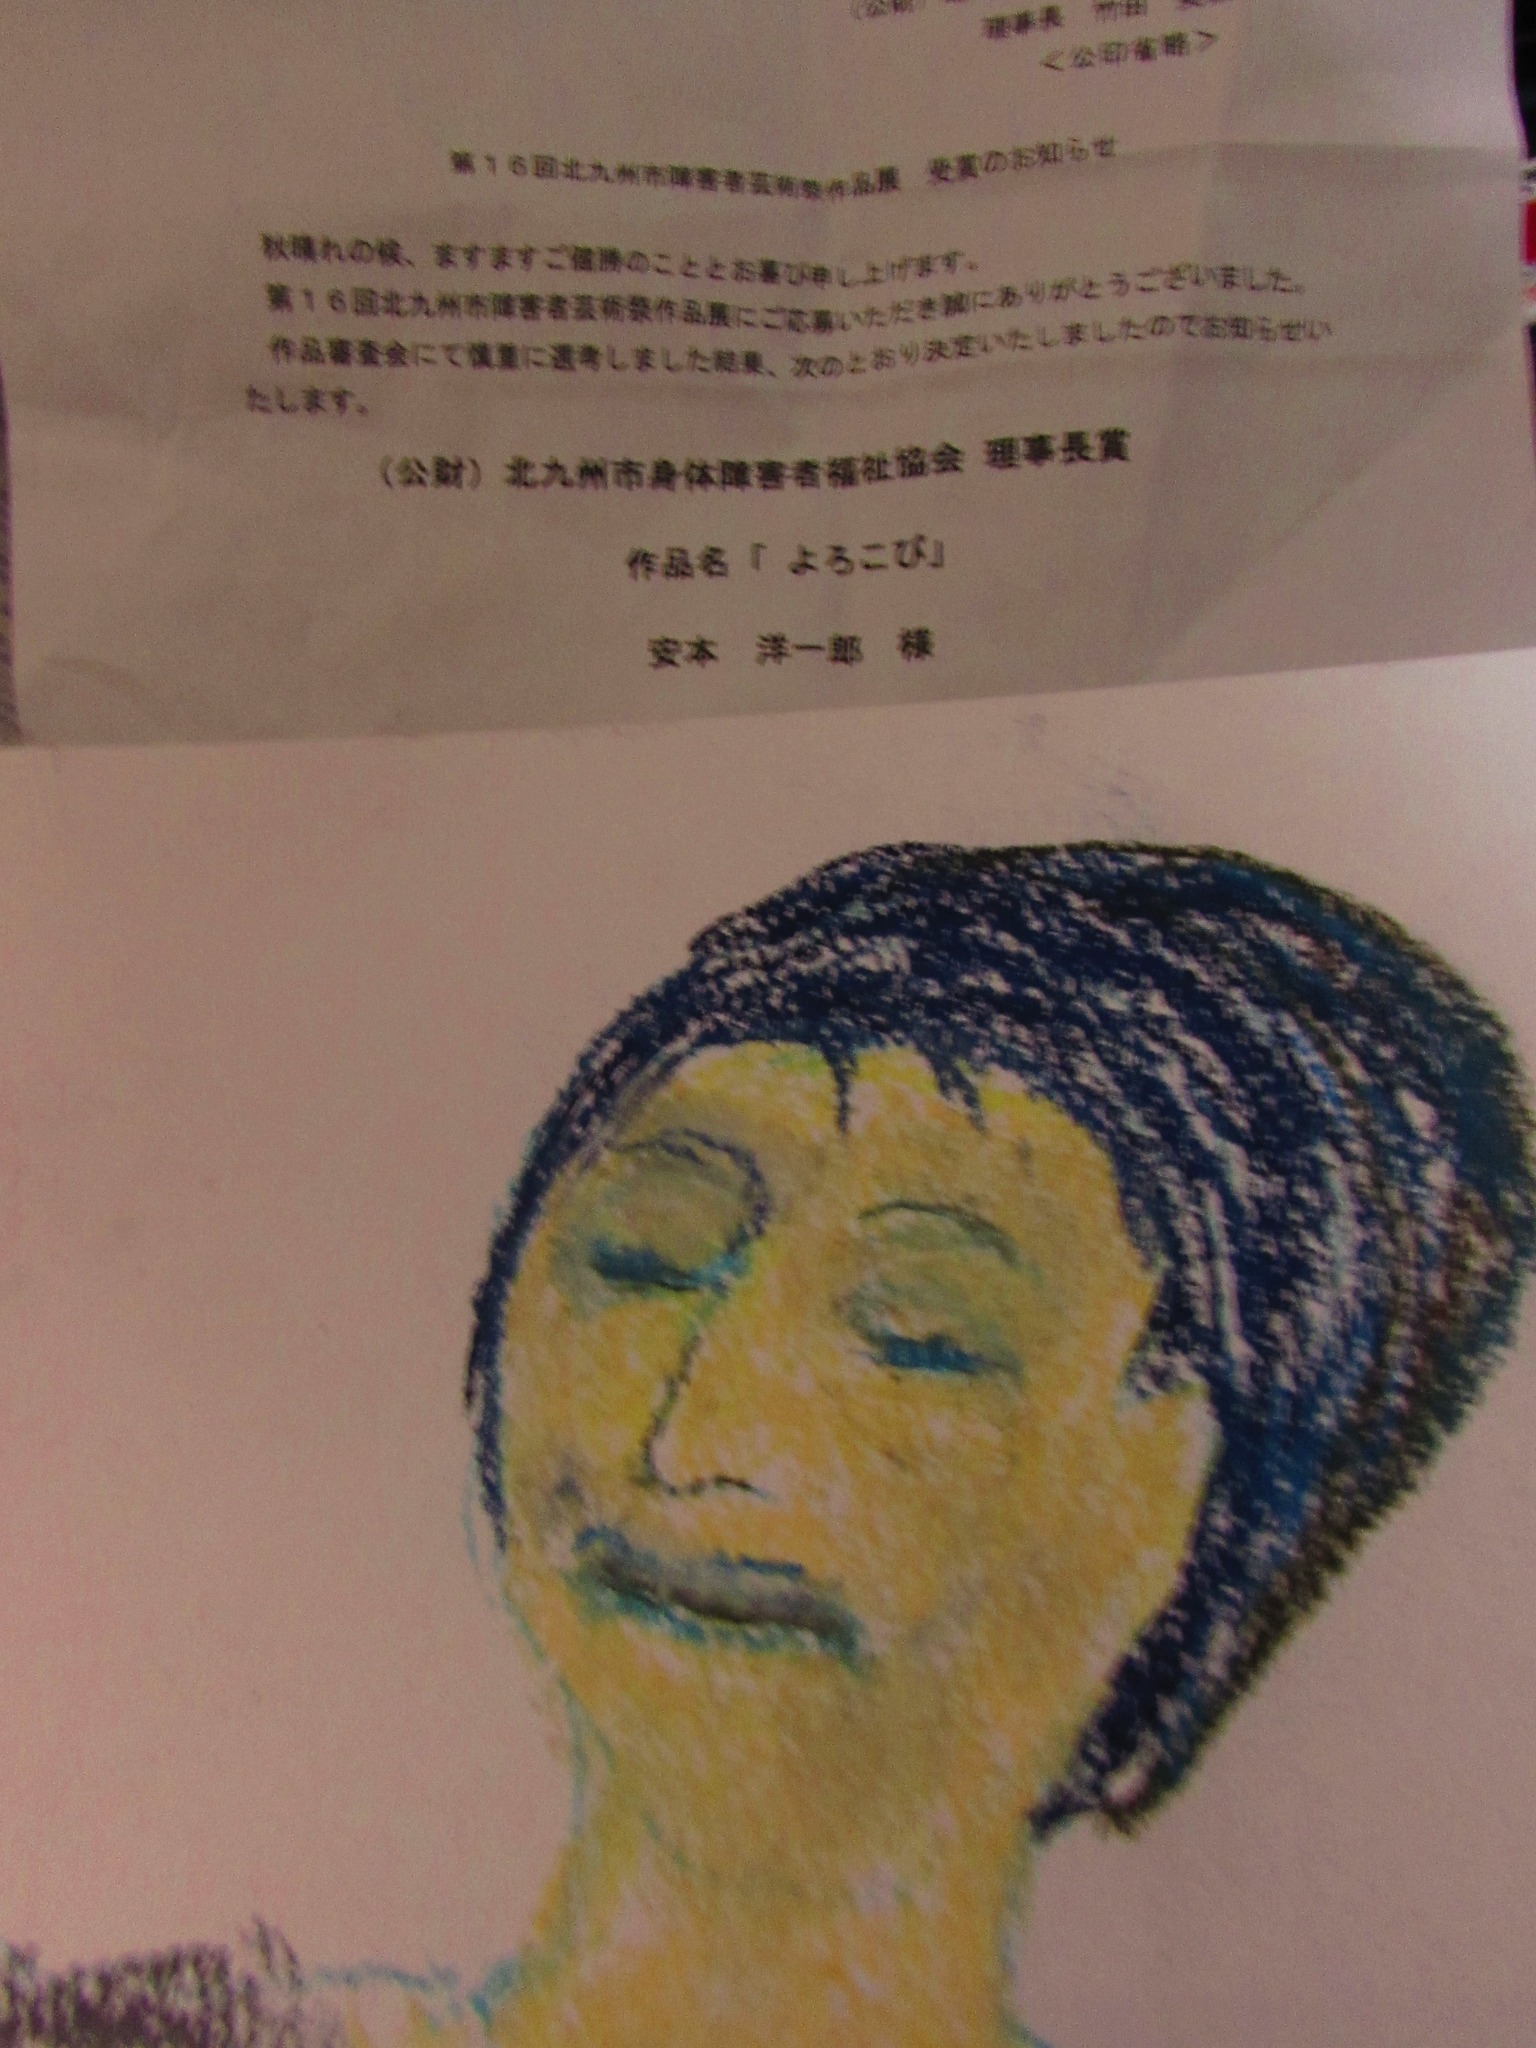 （公財）
理事長
＜公印省略＞
第１６回北九州市障害者芸術祭作品展　受賞のお知らせ
秋晴れの候、ますますご健勝のこととお喜び申し上げます。
第１６回北九州市障害者芸術祭作品展にご応募いただき誠にありがとうございました。
作品審査会にて慎重に選考しました結果、次のとおり決定いたしましたのでお知らせい
たします。
（公財）北九州市身体障害者福祉協会 理事長賞
作品名「 よろこび」
安本　洋一郎　様